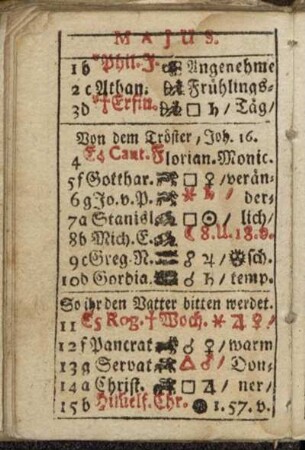 MAJUS.
1 b Phil. J. Angenehme
2 c Athan. Frühlings-
3 d † Erfin. □ ♄ / Täg/
Von dem Tröster / Joh. 16.
4 E4 Cant. Florian. Monic.
5 f Gotthar. □ ♀ / verän-
6 g Jo. v. P. ✶ ♄ / der-
7 a Staniśl. □ ☉ / lich /
8 b Mich. E. ☾ 8. U. 18. v.
9 c Greg. N. ☌ ♃ / ☉sch.
10 d Gordia. ☌ ♄ / temp.
So ihr den Vatter bitten werdet.
11 E5 Rog. † Woch. ✶ ♃ ♀ /
12 f Pancrat. ☌ ♀ / warm
13 g Servat. △ ♂ / Don-
14 a Christ. □ ♃ / ner /
15 b Himelf. Chr. ● 1. 57. v.